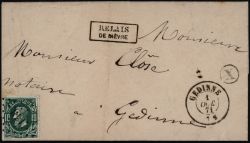 RELAIS
DE BIÈVRE
Monsieur
Monsieur Close
notaire
à
Gedinne
X
GEDINNE
1
71